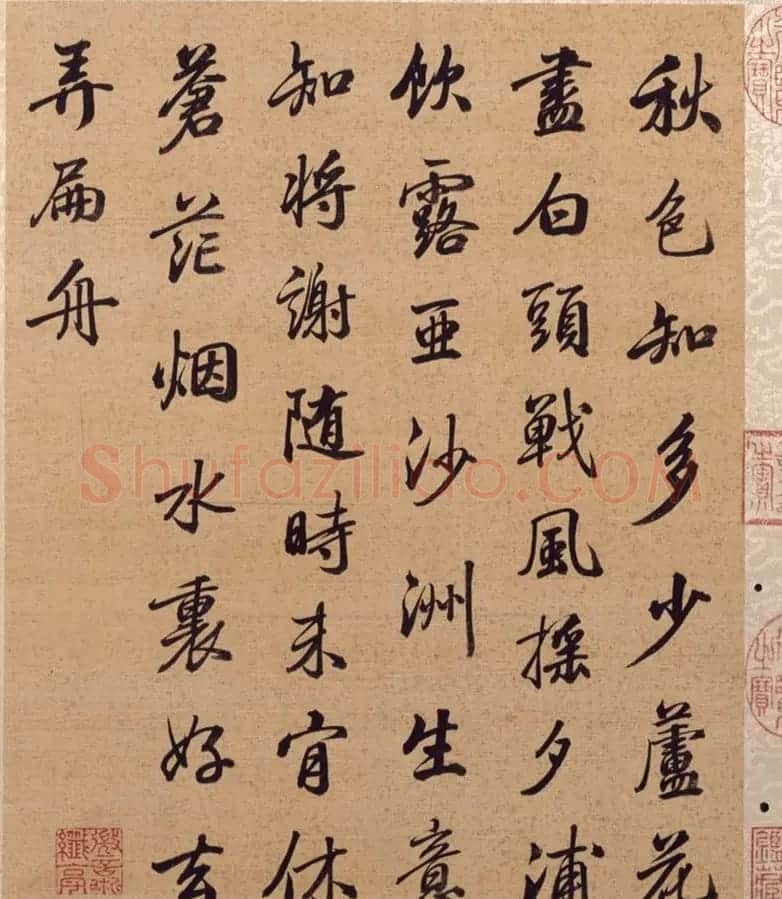 秋色知多少蘆花
盡白頭戰風搖夕浦
飲露亞沙洲生意
知將謝随時未宜休
蒼茫烟水裏好去
弄扁舟
Shufaziliao.COM